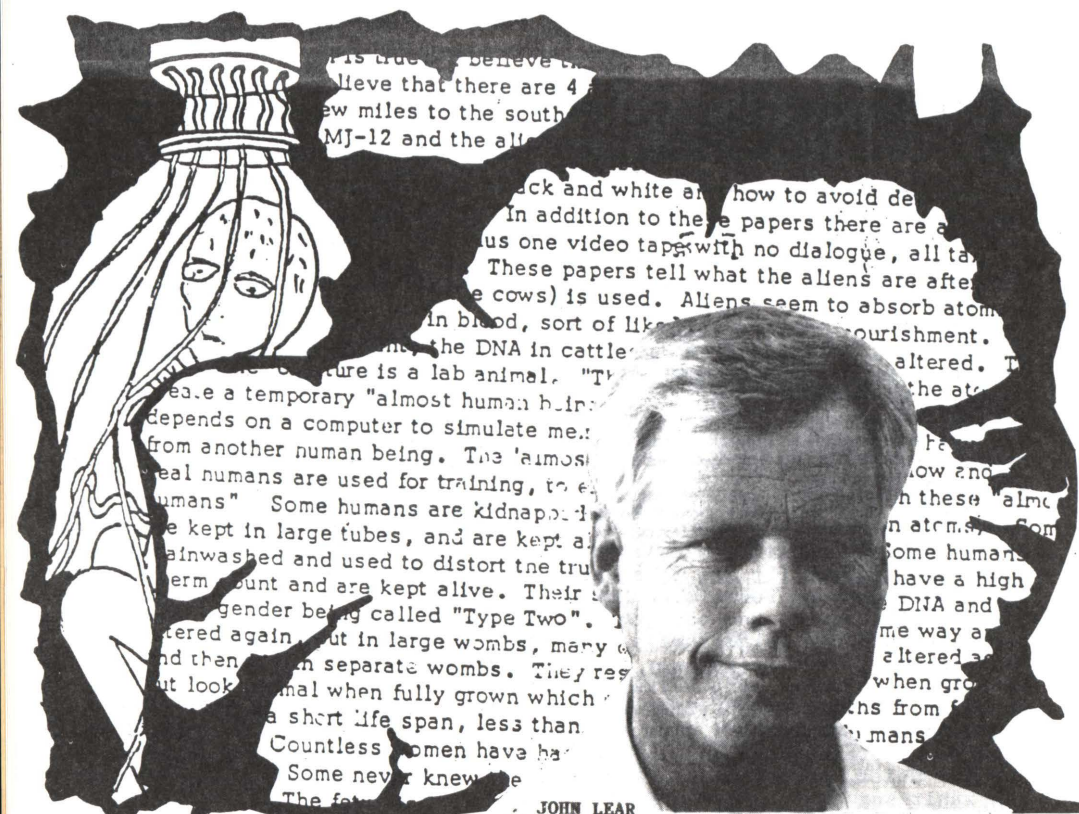 is true believe
lieve that there are 4
ew miles to the south
MJ-12 and the alie
ack and white an how to avoid de
In addition to these papers there are a
us one video tape with no dialogue, all ta
These papers tell what the aliens are afte
e cows) is used. Aliens seem to absorb atom
in blood, sort of like ourishment.
the DNA in cattle altered. T
ture is a lab animal. "Th the ato
reate a temporary "almost human bein
depends on a computer to simulate mem
from another human being. The 'almost ow and
eal humans are used for training, to e h these "almo
umans" Some humans are kidnapped n atoms. Som
e kept in large tubes, and are kept al Some humans
ainwashed and used to distort the tru have a high
perm count and are kept alive. Their s DNA and
gender being called "Type Two". T me way a
tered again, put in large wombs, many altered ag
nd then in separate wombs. They res when gro
ut look mal when fully grown which ths from
a short life span, less than umans
Countless women have ha
Some never knew the
The fet
JOHN LEAR